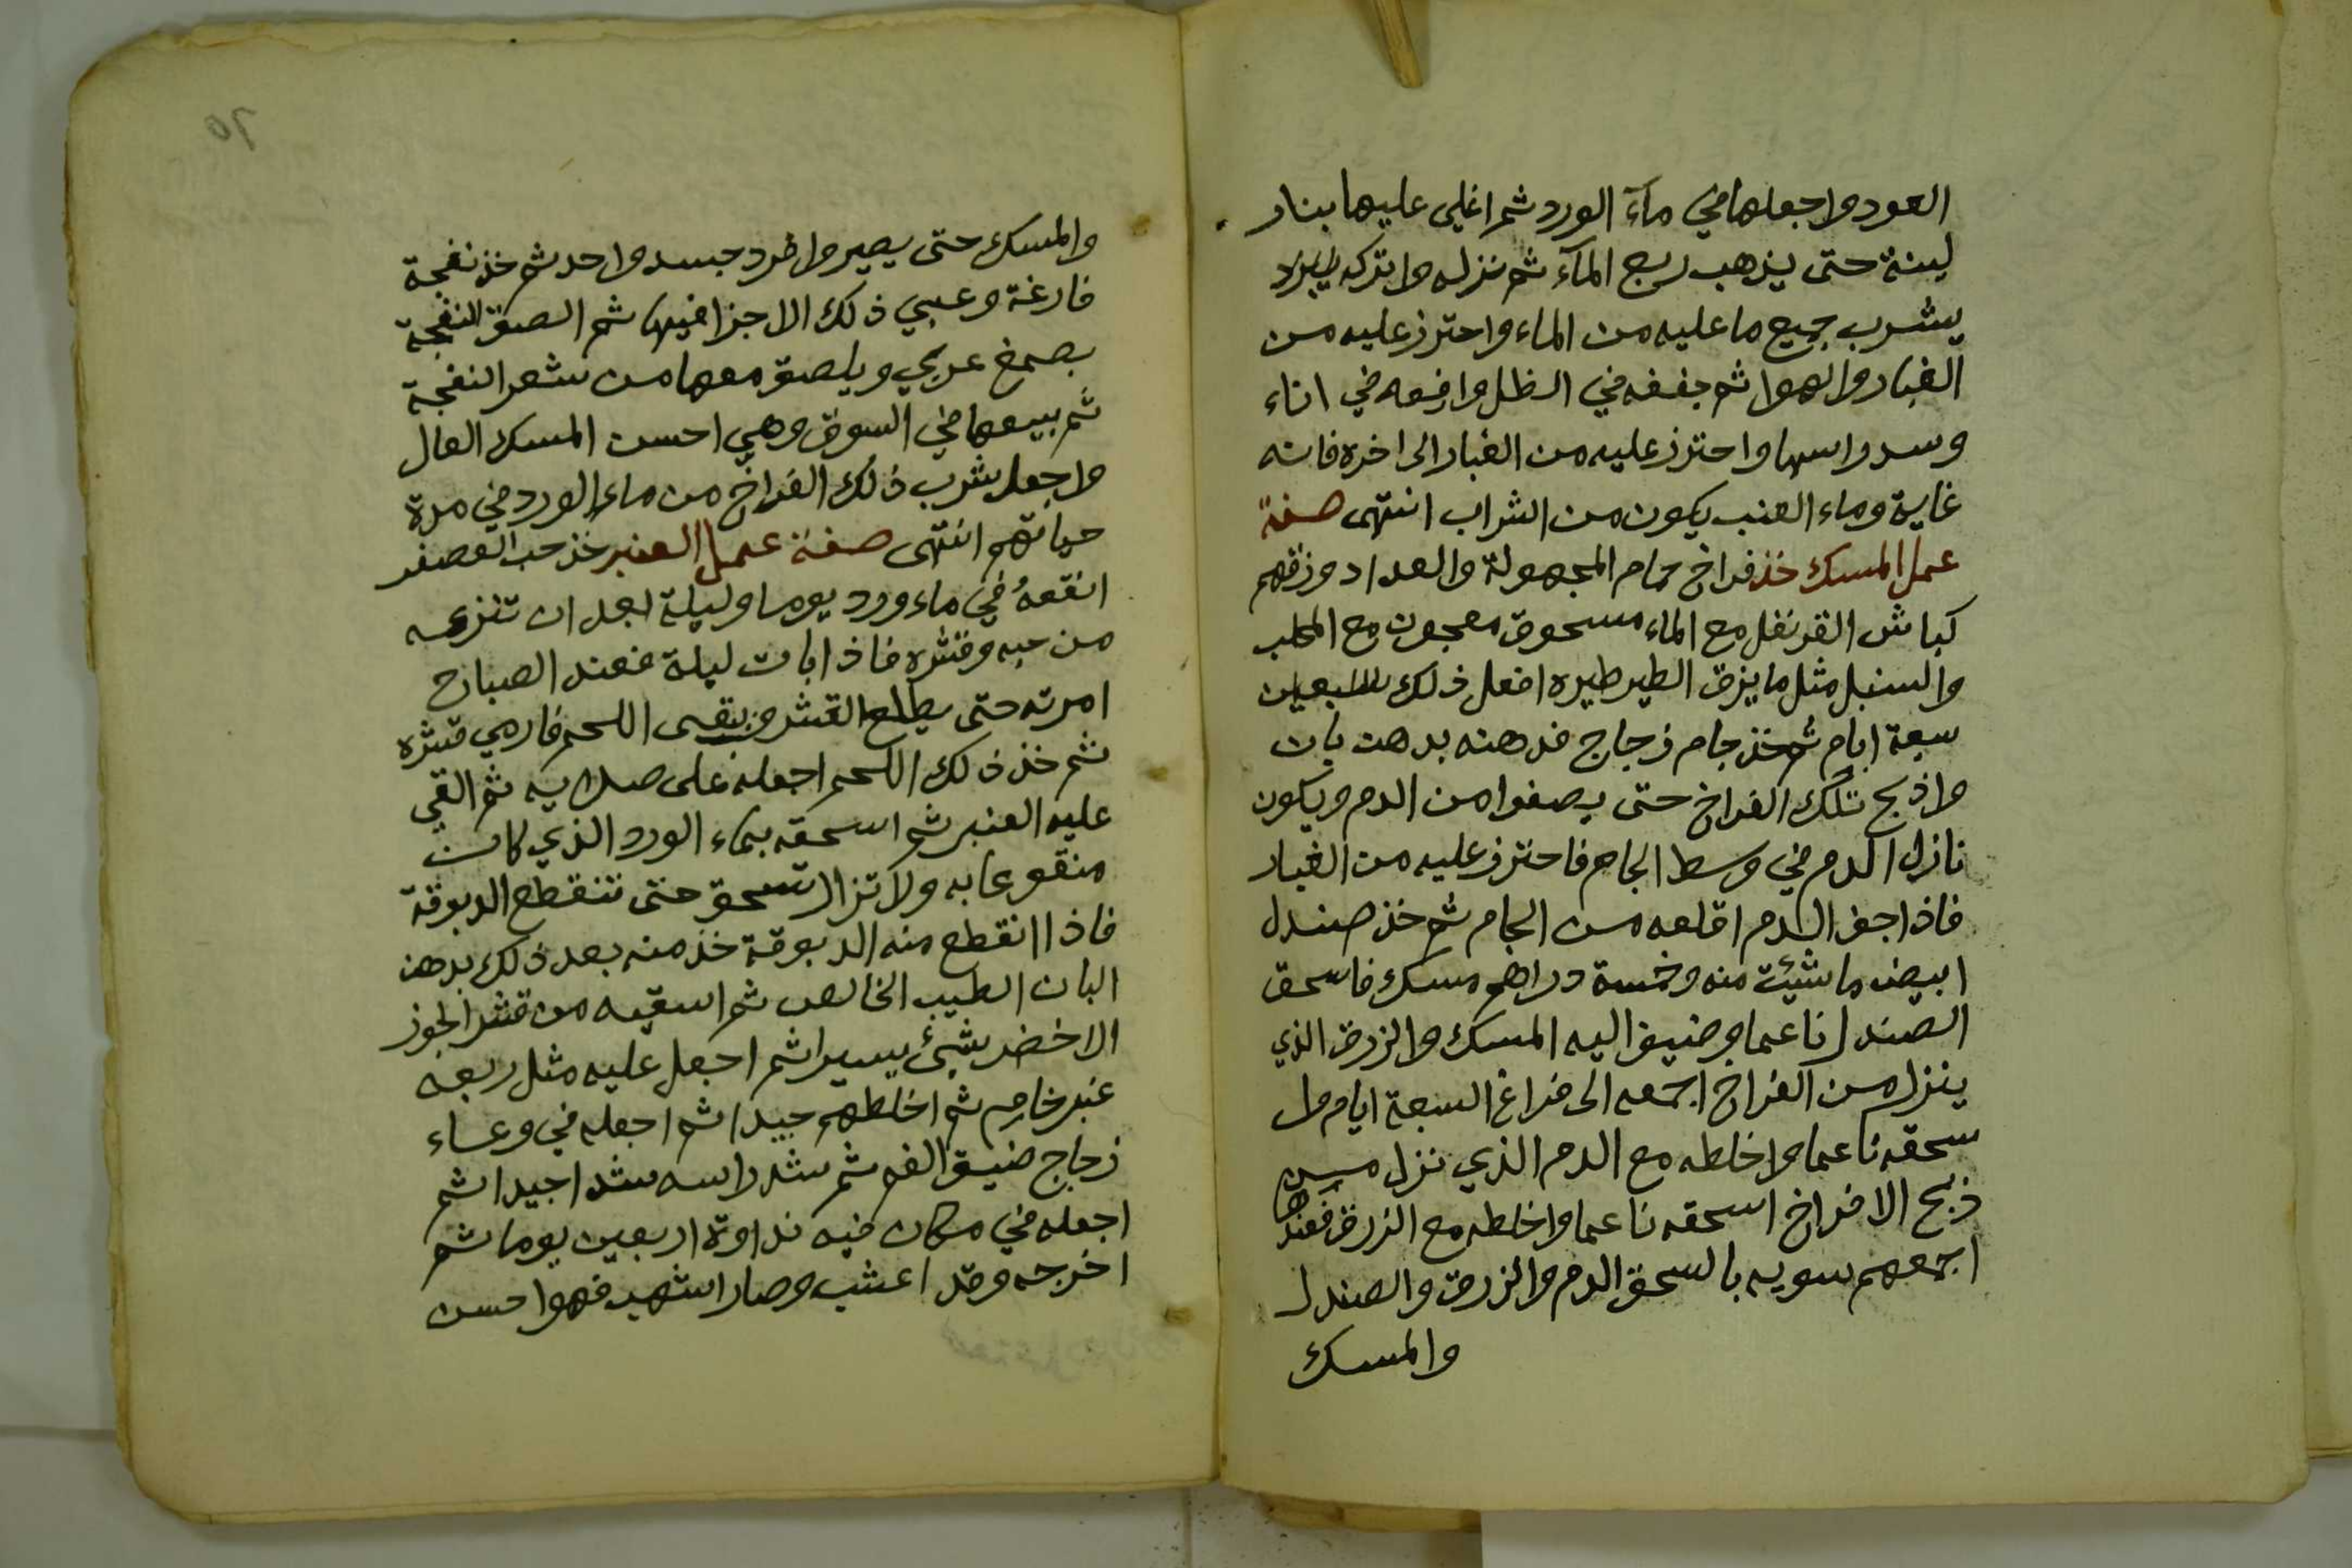 العود واجعلها في مآء الورد ثم اغلي عليها بنار
لينة حتى يذهب ربع المآء ثم نزله واتركه يبرد
يشرب جميع ما عليه من الماء واحترز عليه من
الغبار والهوا ثم جففه في الظل وارفعه في اناء
وسد راسها واحترز عليه من الغبار الى اخره فانه
غاية وماء العنب يكون من الشراب انتهى صفة
عمل المسك خذ فراخ حمام المجهولة والعداد وزقهم
كباش القرنفل مع الماء مسحوق معجون مع المحلب
والسنبل مثل ما يزق الطير طيره افعل ذلك
سبعة ايام ثم خذ جام زجاج فدهنه بدهن بان
واذبح تلك الفراخ حتى يصفوا من الدم ويكون
نازل الدم في وسط الجام فاحترز عليه من الغبار
فاذا جف الدم اقلعه من الجام ثم خذ صندل
ابيض ما شيئت منه وخمسة دراهم مسك فاسحق
الصندل ناعما وضيف اليه المسك والزرق الذي
ينزل من الفراخ اجمعه الى فراغ السبعة ايام
سحقه ناعما واخلطه مع الدم الذي نزل من
ذبح الافراخ اسحقه ناعما واخلطه مع الزرق فعندها
اجمعهم سويه بالسحق الدم والزرق والصندل
والمسك
٦٥
والمسك حتى يصير وافرد جسد واحد ثم خذ نفجة
فارغة وعبي ذلك الاجزا فيها ثم الصق النفجة
بصمغ عربي ويلصق معها من شعر النفجة
ثم بيعها في السوق وهي احسن المسك العال
واجعل شرب ذلك الفراخ من ماء الورد في مدة
حياتهم انتهى صفة عمل العنبر خذ حب العصفر
انقعهُ في ماء ورد يوما وليلة بعد ان تنزعه
من حبه وقشره فاذا بات ليلة فعند الصباح
امرته حتى يطلع القشر ويبقى اللحم فارمي قشره
ثم خذ ذلك اللحم اجعله على صلايه ثم القي
عليه العنبر ثم اسحقه بماء الورد الذي كان
منقوعا به ولا تزال تسحق حتى تنقطع الدبوقة
فاذا انقطع منه الدبوقة خذ منه بعد ذلك بدهن
البان الطيب الخالص ثم اسقيه من قشر الجوز
الاخضر بشيئ يسيرا ثم اجعل عليه مثل ربعه
عنبر خام ثم اخلطهم جيدا ثم اجعله في وعاء
زجاج ضيق الفم ثم شد راسه شدا جيدا ثم
اجعله في مكان فيه نداوة اربعين يوما ثم
اخرجه وقد اعشب وصار اشهب فهو احسن